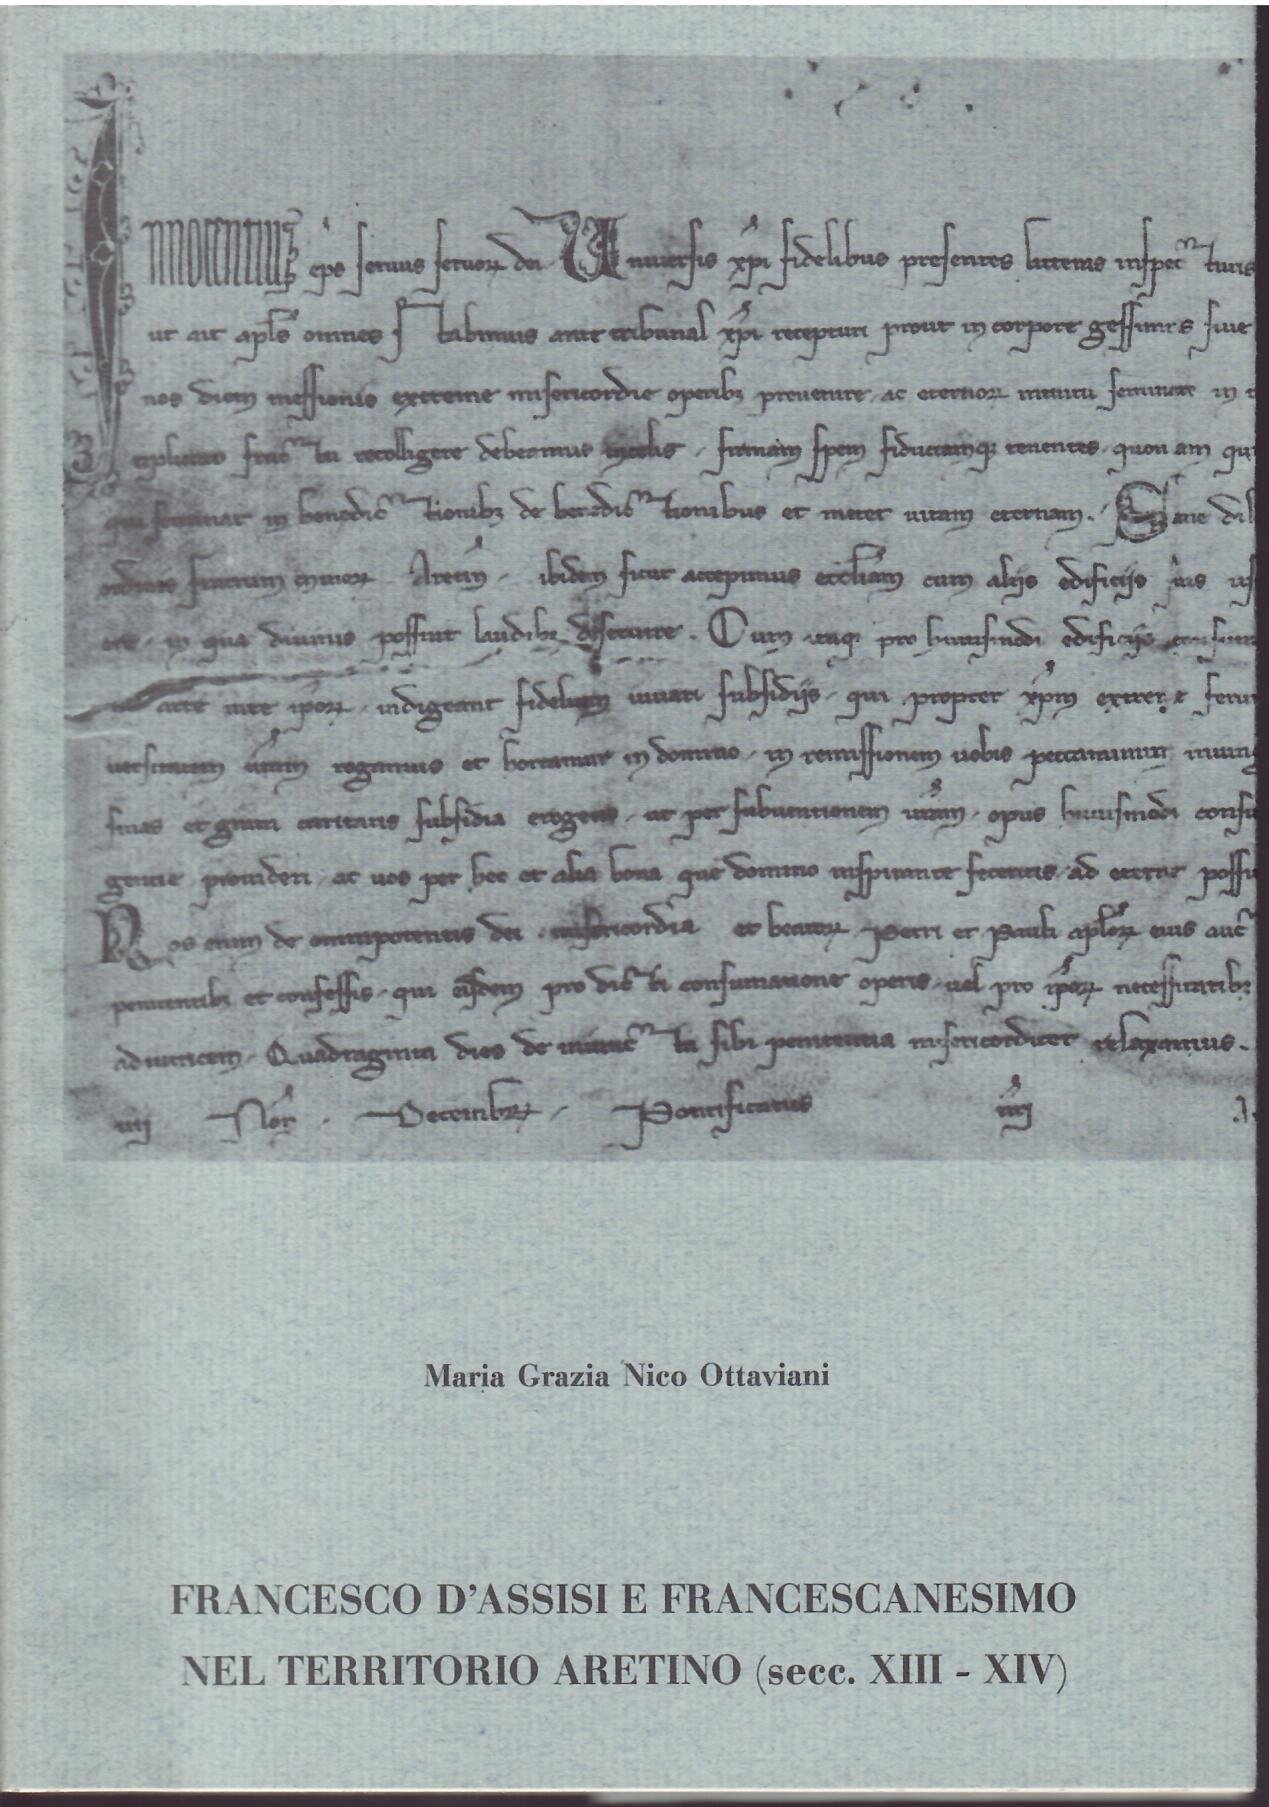 INNOCENTIUS eps seruus seruor dei Uniuersis xpi fidelibus presentes litteras inspecturis
ut ait apls omnes stabimus ante tribunal xpi recepturi prout in corpore gessimus siue
nos diem messionis extreme misericordie operibz preuenire ac eternor intuitu seminare in
fructu recolligere debeamus in celis firmam spem fiduciamqz tenentes quoniam qui
qui seminat in benedictionibz de benedictionibus et metet uitam eternam. Sane dil
ordinis fratrum minor Aretin ibidem sicut accepimus eccliam cum aliis edificiis
in qua diuinis possint laudibz deseruire. Cum itaqz pro huiusmodi edificiis
ipor indigeant fidelium iuuari subsidiis qui propter xpm
uersitatem uram rogamus et hortamur in domino in remissionem uobis peccaminum
sinas et grata caritatis subsidia erogetis ut per subuentionem uram opus huiusmodi
prouideri ac uos per hec et alia bona que domino inspirante feceritis ad eterne
Nos enim de omnipotentis dei misericordia et beator Petri et Pauli aplor eius auct
penitentibz et confessis qui eisdem pro dicti consumatione operis uel pro ipor necessitatibz
adiutricem Quadraginta dies de iniuncta sibi penitentia misericorditer relaxamus.
iiij Non Decembr Pontificatus
Maria Grazia Nico Ottaviani
FRANCESCO D'ASSISI E FRANCESCANESIMO
NEL TERRITORIO ARETINO (secc. XIII - XIV)